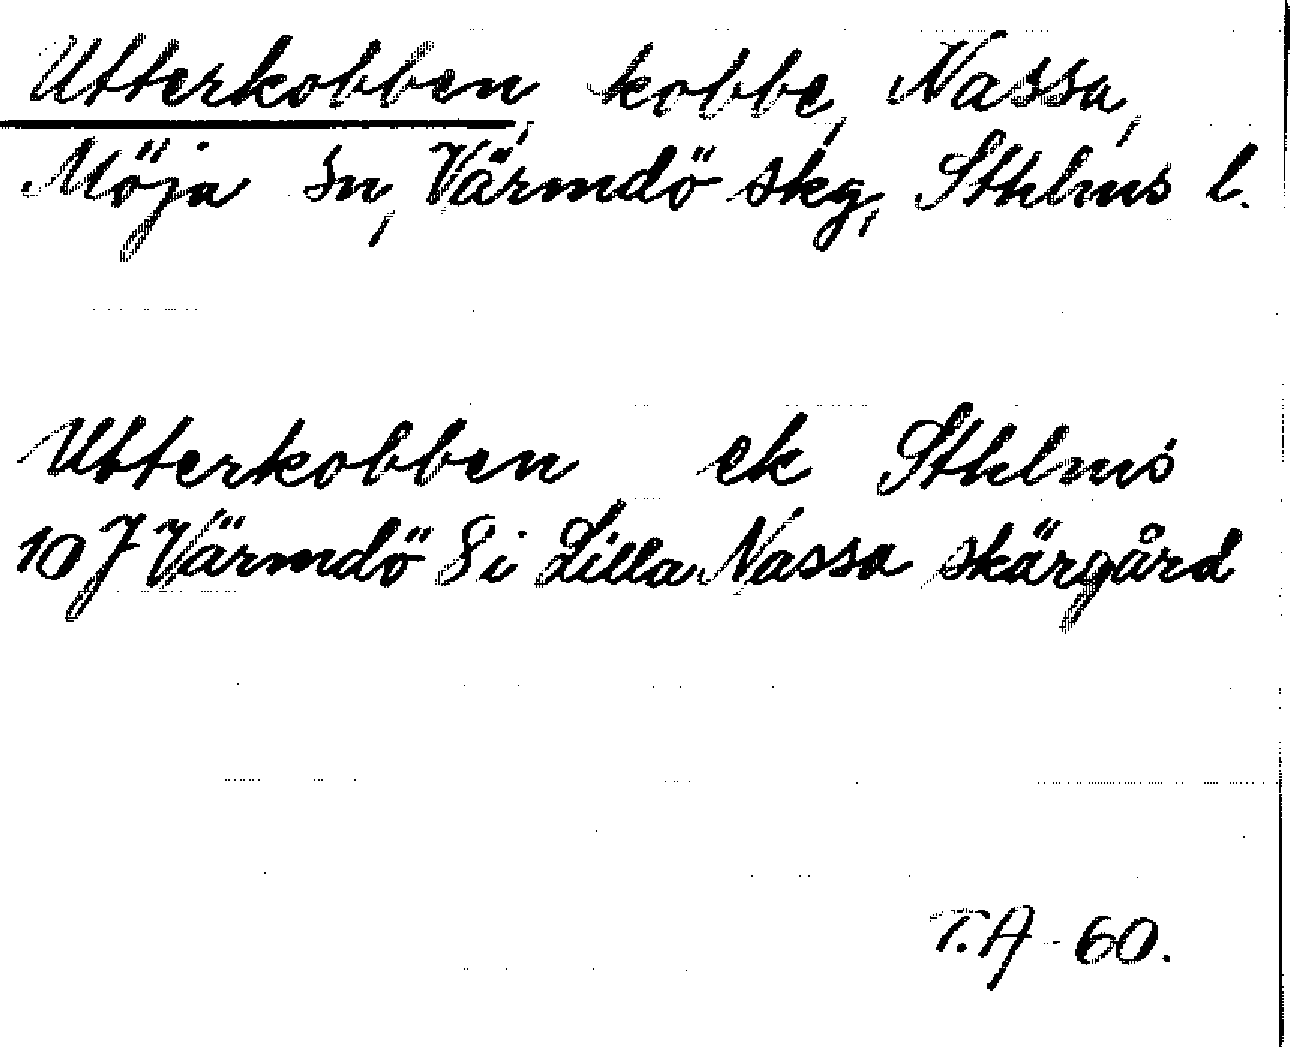 Utterkobben, kobbe, Nassa,
Möja sn, Värmdö skg, Sthlms l.
Utterkobben ek Sthlms
10 J Värmdö 8 i Lilla Nassa skärgård
T.A - 60.